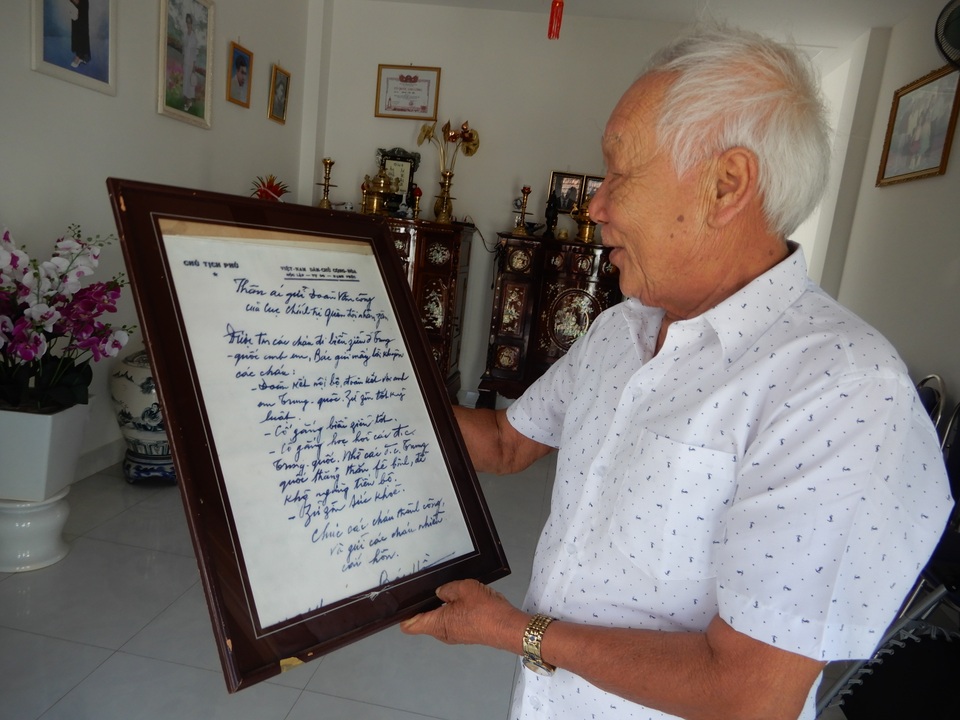 CHỦ TỊCH PHỦ
VIỆT-NAM DÂN CHỦ CỘNG-HÒA
ĐỘC LẬP - TỰ DO - HẠNH PHÚC
Thân ái gửi Đoàn Văn công
của Cục Chính trị Quân đội nhân dân
Được tin các cháu đi biểu diễn ở Trung
-quốc anh em, Bác gửi mấy lời nhuận
các cháu:
- Đoàn kết nội bộ, đoàn kết với anh
em Trung-quốc. Zữ zìn tốt kỷ
luật.
- Cố gắng biểu ziễn tốt.
- Cố gắng học hỏi các đ.c.
Trung-quốc. Nhờ các đ.c. Trung
quốc thẳng thắn fê bình, để
khg ngừng tiến bộ.
- Zữ zìn sức khỏe.
Chúc các cháu thành công.
và gửi các cháu nhiều
cái hôn.
Bác Hồ